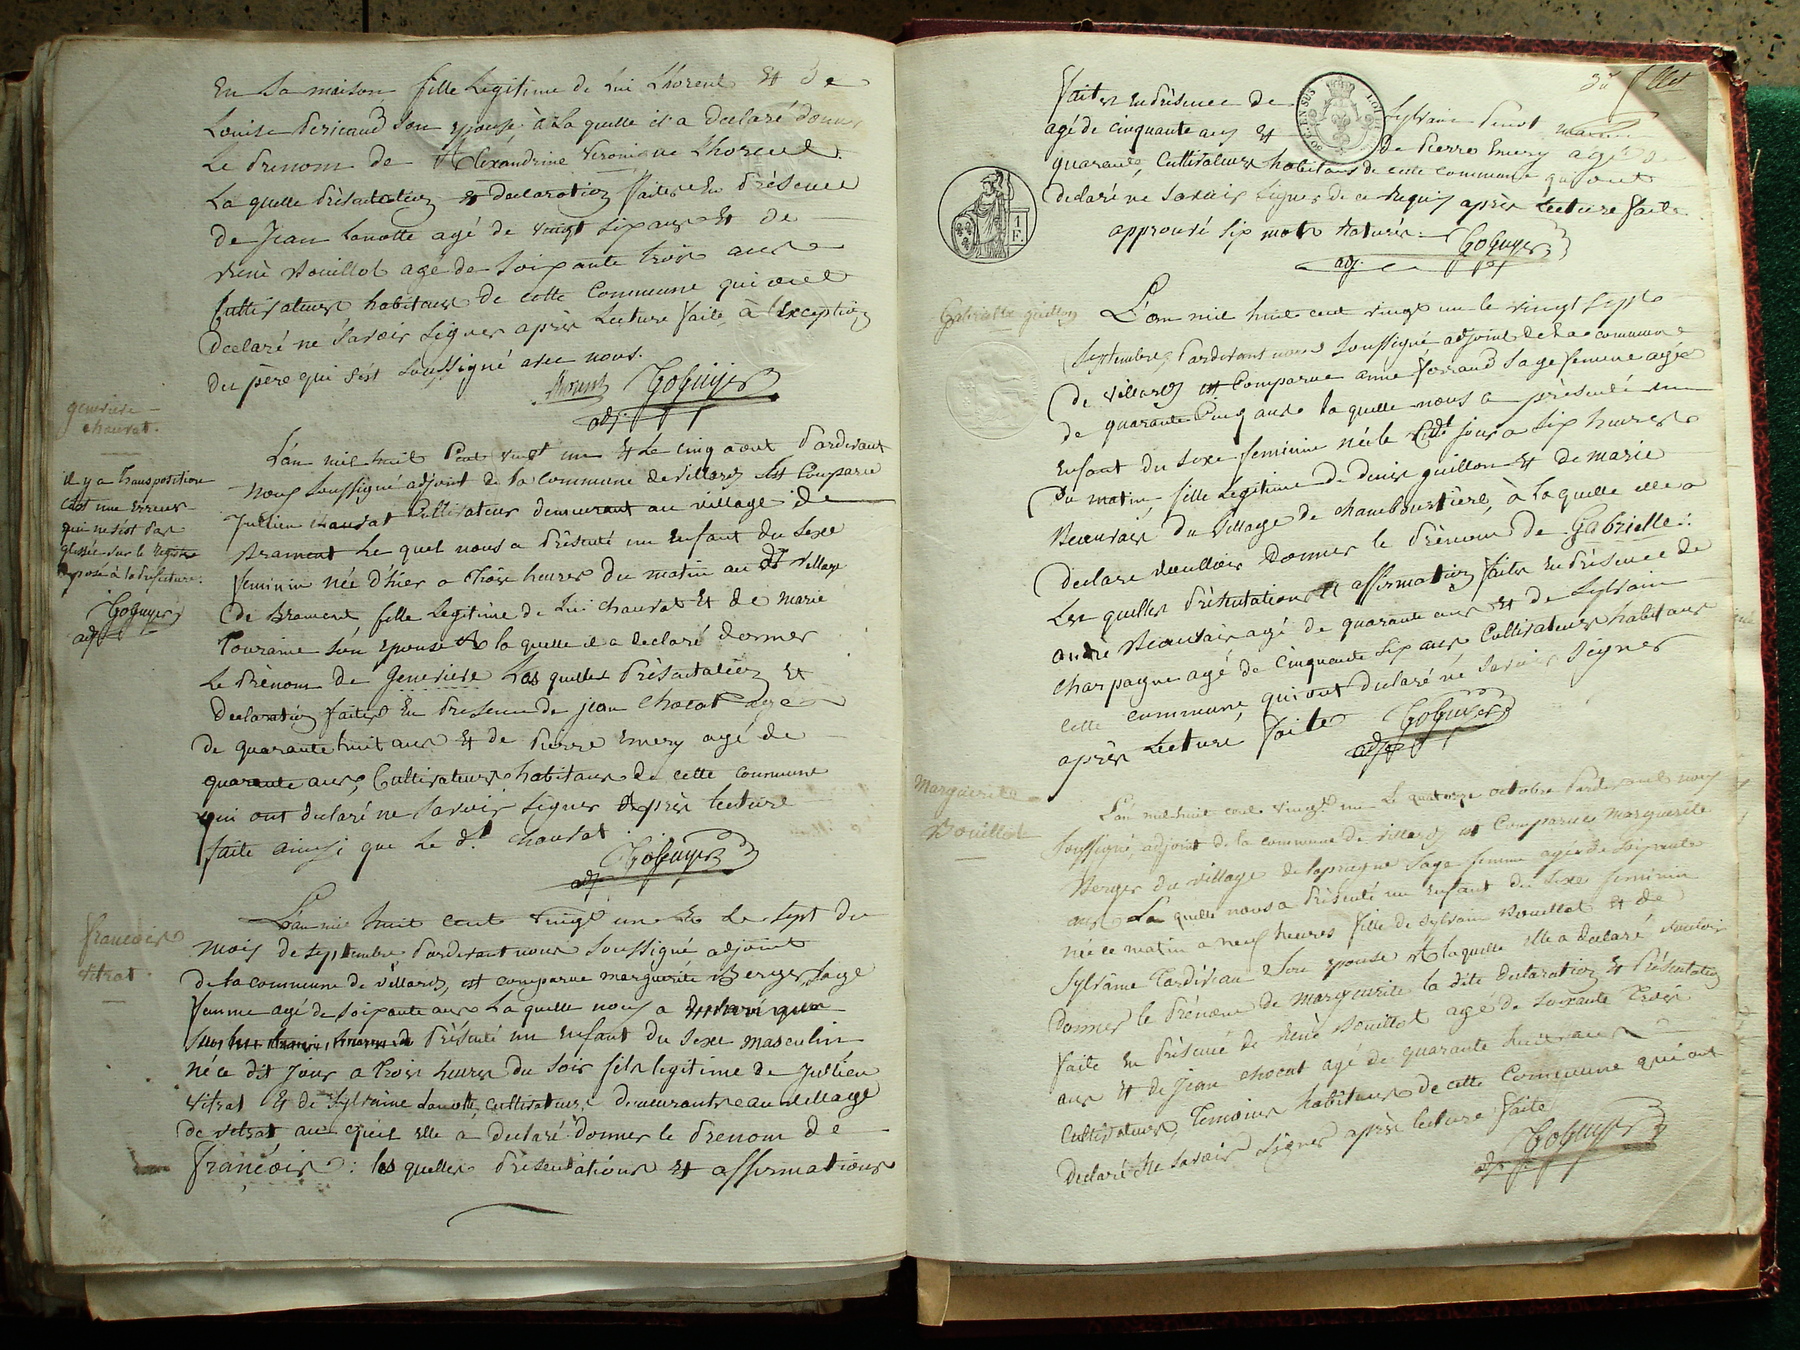 En sa maison fille legitime de lui Lhoreul Et de
Louise son epouse à la quelle il a declaré donner
Le prenom de Alexandrine Veronique Lhoreul.
La quelle présentation et declaration faites En présence
de Jean Lanotte agé de vingt six ans Et de
réné Rouillot age de soixante trois ans
Cultivateurs habitans de cette Commune qui ont
declaré ne savoir signer après Lecture faite, à l'exception
du père qui s'est soussigné avec nous.
GoGuyer
adj.
genevieve
chauvat.
L'an mil huit Cent vingt un Et Le cinq aout Pardevant
nous soussigné adjoint de la commune de Villards Est Comparu
Jullien chauvat Cultivateur demeurant au village de
Brament Le quel nous a présenté un Enfant du sexe
feminin née d'hier a troix heures du matin au dt village
de Brament fille Legitime de Lui chauvat Et de marie
Touraine son epouse A la quelle il a declaré donner
Le prénom de genevieve Les quelles présentation Et
declaration faites En presence de jean chocat age
de quarante huit ans Et de Pierre Emery agé de
quarante ans, Cultivateurs habitans de cette commune
qui ont declaré ne savoir signer Après lecture
faite ainsi que Le dt. chauvat
GoGuyer
adj.
il y a transposition
c'est une erreur
qui nest pas
glissée sur le registre
déposé à la préfecture.
GoGuyer
adj.
francois
vitrat.
L'an mil huit cent vingt un Et Le sept du
mois de septembre Pardevant nous soussigné adjoint
de la commune de villards, est comparue marguerite Berger sage
femme agé de soixante ans La quelle nous a
présenté un Enfant du sexe masculin
né ce dit jour a troix heures du soir fils legitime de Jullien
vitrat Et de sylvaine Lanotte, cultivateurs demeurants au village
de vitrat au quel elle a declaré donner le prenom de
françois: les quelles présentations Et affirmations
3e fllet
faites En présence de sylvain
agé de cinquante ans Et de Pierre Emery agé de
quarante, Cultivateurs habitans de cette commune qui ont
declaré ne savoir signer de ce requis après Lecture faite.
approuvé six mots raturés.
GoGuyer
adj.
1 F.
Gabrielle guillon
L'an mil huit cent vingt un le vingt sept
septembre, Pardevant nous soussigné adjoint de La commune
de villards est Comparue anne sage femme agée
de quarante Cinq ans la quelle nous a présenté un
Enfant du sexe feminin née le dt jour a six heures
du matin, fille Légitime de denis guillon Et de marie
Beauvais du village de chamboursière, à la quelle elle a
declaré vouloir donner le prénom de Gabrielle:
Les quelles présentation et affirmation faites En présence de
andré Beauvais agé de quarante ans Et de sylvain
charpagne agé de Cinquante six ans, Cultivateurs habitans
cette commune, qui ont declaré ne savoir signer
après Lecture faite
GoGuyer
adj.
Marguerite
Rouillot
L'an mil huit cent vingt un Le quatorze octobre Pardevant nous
soussigné adjoint de la commune de villards est Comparue marguerite
Berger du village de sage femme agée de soixante
ans La quelle nous a présenté un Enfant du sexe feminin
né ce matin a neuf heures fille de sylvain Rouillot Et de
sylvaine Tardiveau son epouse A laquelle elle a declaré vouloir
donner le prénom de marguerite la dite declaration Et présentation
faite En présence de réné Rouillot agé de soixante trois
ans Et de jean chocat agé de quarante huit ans
Cultivateurs, Temoins habitans de cette Commune qui ont
declaré Ne savoir signer après lecture faite
GoGuyer
adj.